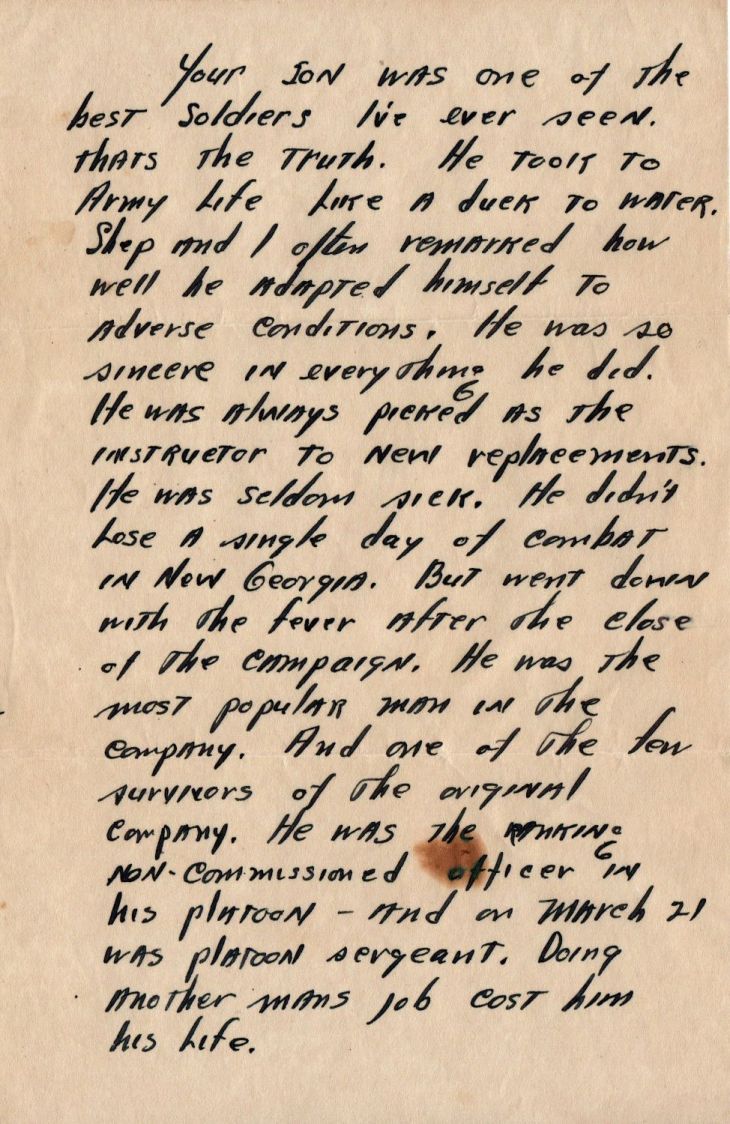 Your son was one of the
best soldiers I've ever seen.
thats the truth. He took to
Army life like a duck to water.
Shep and I often remarked how
well he adapted himself to
adverse conditions. He was so
sincere in everything he did.
He was always picked as the
instructor to new replacements.
He was seldom sick. He didn't
lose a single day of combat
in New Georgia. But went down
with the fever after the close
of the campaign. He was the
most popular man in the
company. And one of the few
survivors of the original
company. He was the ranking
non-commissioned officer in
his platoon - and on March 21
was platoon sergeant. Doing
another mans job cost him
his life.